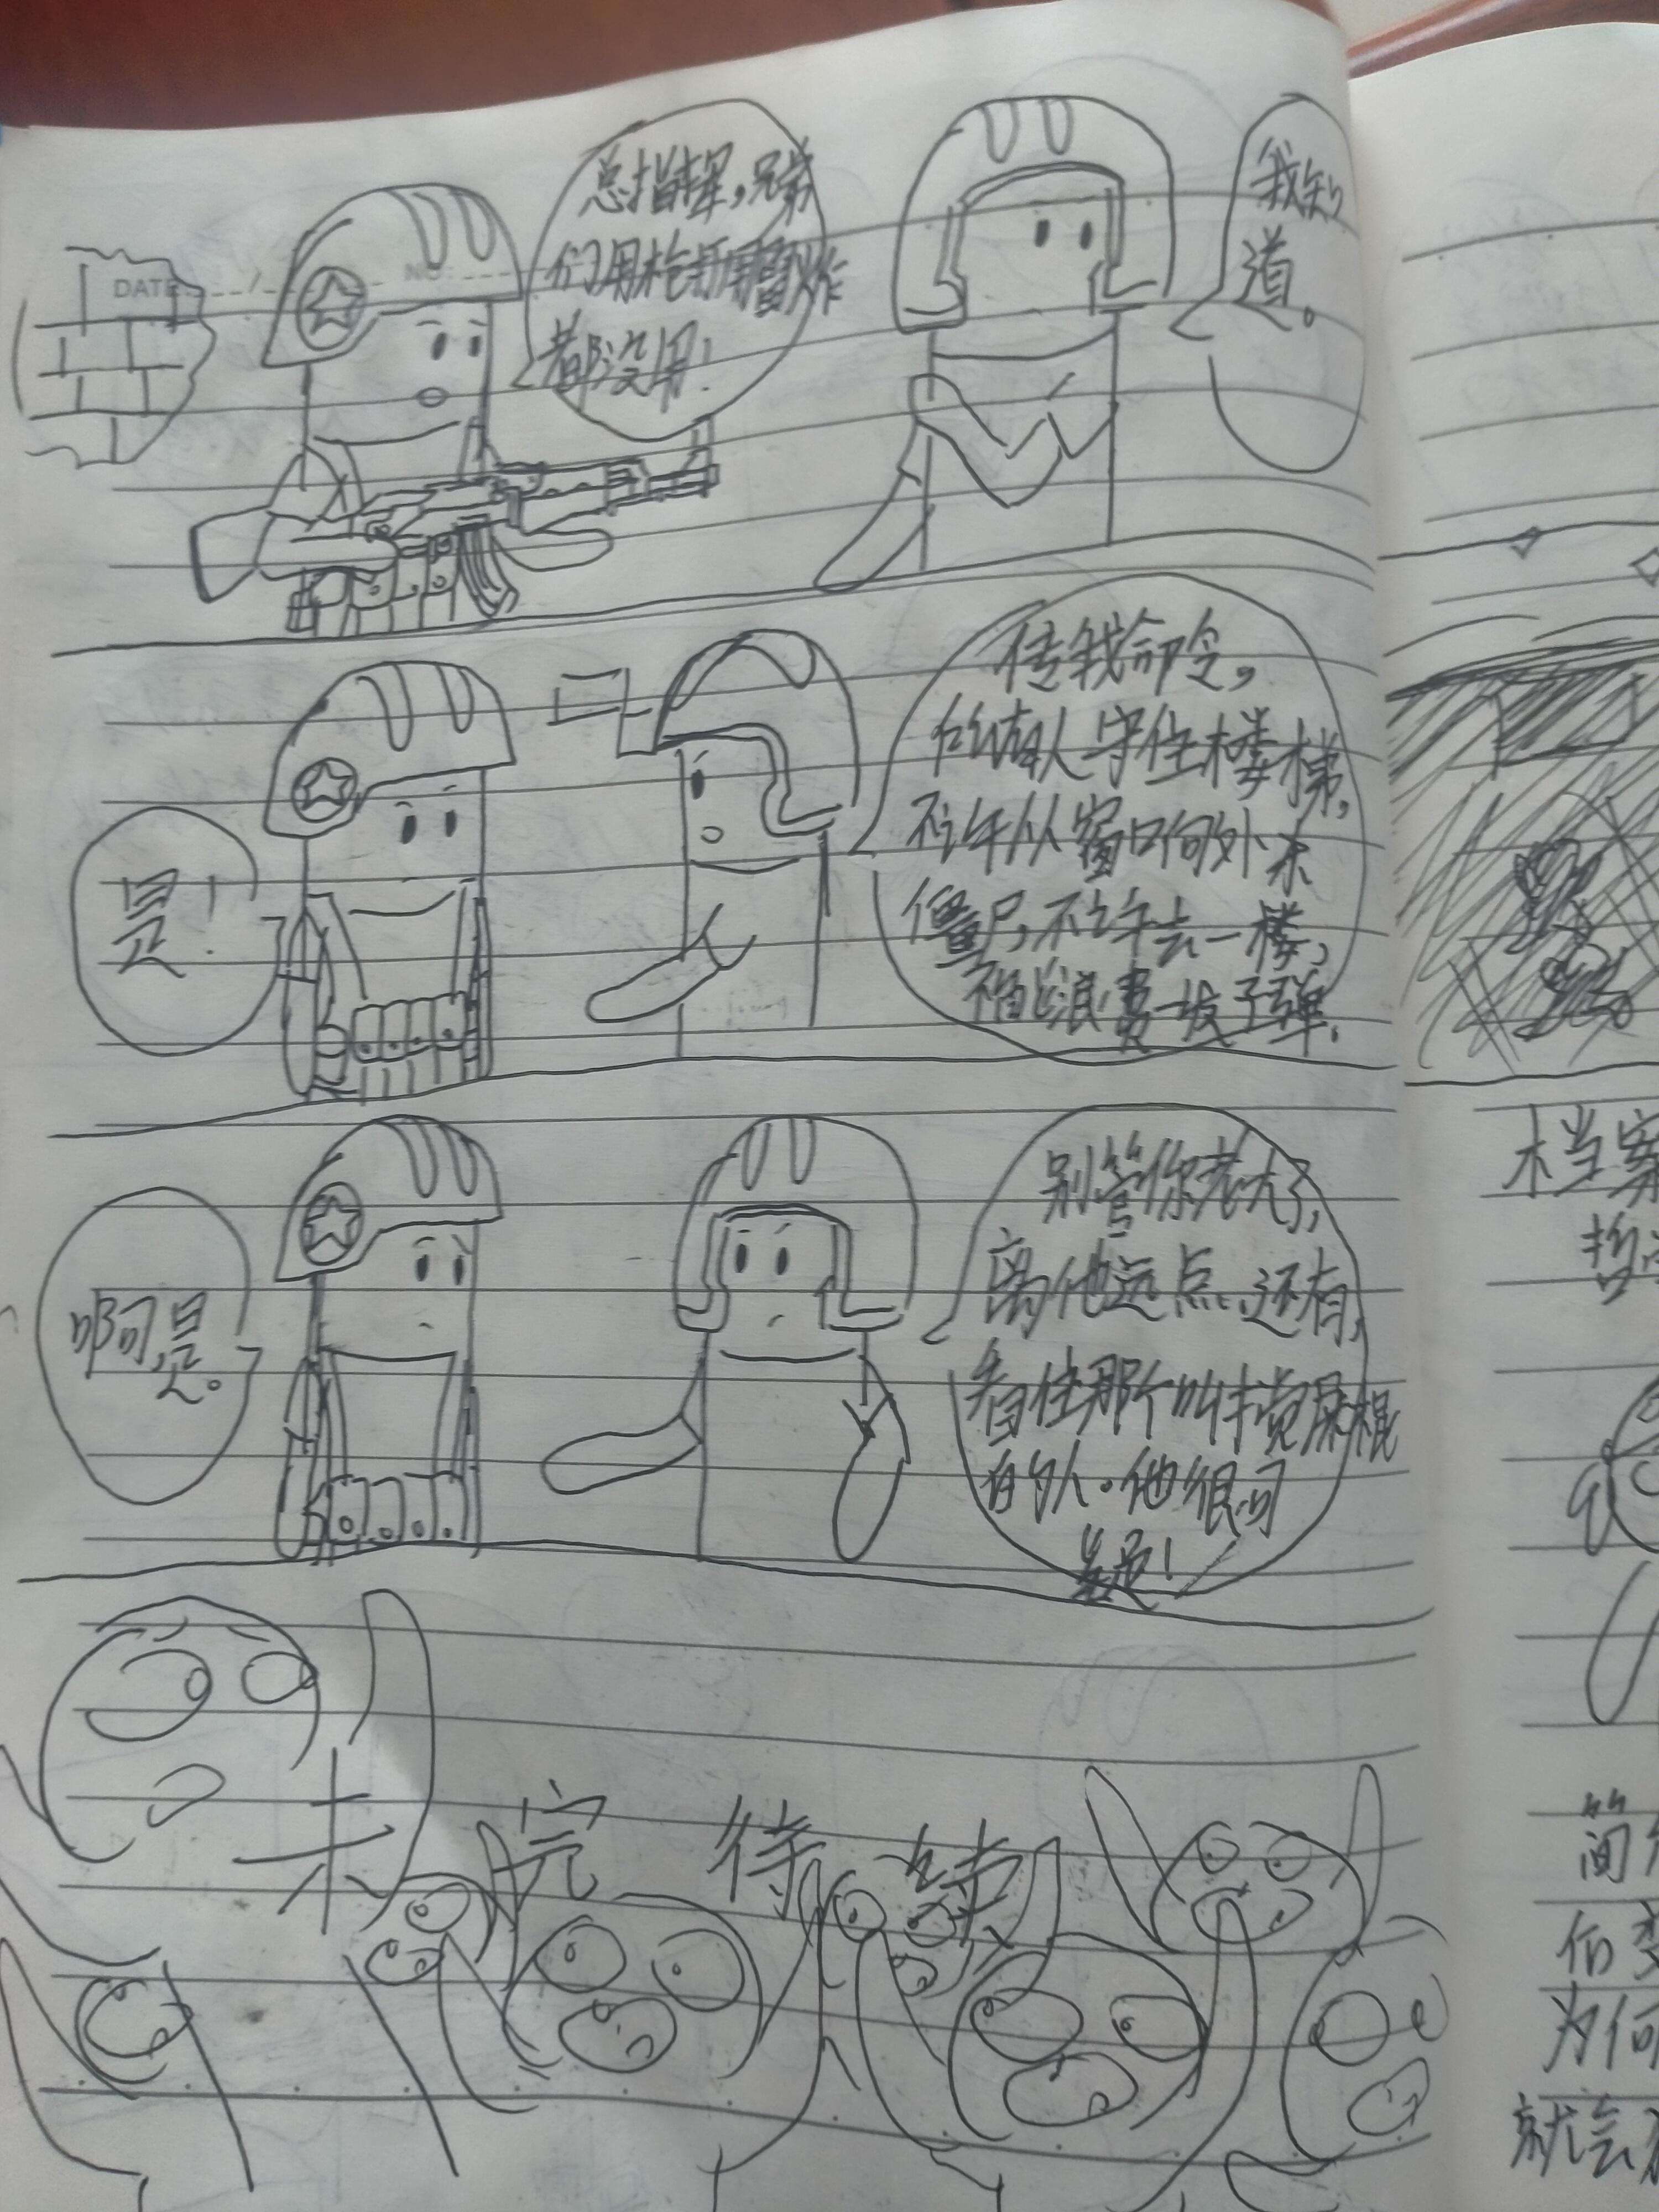 DATE: NO:
总指挥,兄弟
们用枪打用雷炸
都没用!
我知
道。
传我命令,
所有人守住楼梯,
不许从窗口向外杀
僵尸,不许去一楼,
不能浪费一发子弹.
是!
别管你老大了,
离他远点,还有,
看住那个叫搅屎棍
的人。他很可
是!
啊是。
未完待续
档案
简
伯变
为何
就会